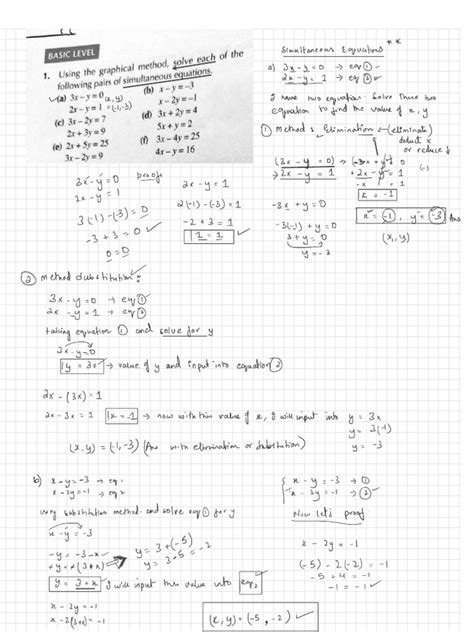 BASIC LEVEL
1. Using the graphical method, solve each of the
following pairs of simultaneous equations.
(a) 3x - y = 0 (x, y)
2x - y = 1 = (-1, -3)
(b) x - y = -3
x - 2y = -1
(c) 3x - 2y = 7
2x + 3y = 9
(d) 3x + 2y = 4
5x + y = 2
(e) 2x + 5y = 25
3x - 2y = 9
(f) 3x - 4y = 25
4x - y = 16
Simultaneous Equations **
a) 3x - y = 0 → eq ①
2x - y = 1 → eq ②
I have two equation. Solve these two
equation to find the value of x, y
① Method : Elimination ← (eliminate)
deduct x
or reduce
(3x - y = 0) → (-3x + y = 0
(-1)
→ 2x - y = 1
+ 2x - y = 1
-x = 1
x = -1
-3x + y = 0
-3(-1) + y = 0
3 + y = 0
y = -3
x = (-1), y = (-3) Ans
(x, y)
3x - y = 0 proof
2x - y = 1
3(-1) - (-3) = 0
-3 + 3 = 0 ✓
0 = 0
2x - y = 1
2(-1) - (-3) = 1
-2 + 3 = 1
1 = 1 ✓
② Method Substitution :
3x - y = 0 → eq ①
2x - y = 1 → eq ②
taking equation ① and solve for y
3x - y = 0
y = 3x → value of y and input into equation ②
2x - (3x) = 1
2x - 3x = 1 x = -1 → now with this value of x, I will input into y = 3x
y = 3(-1)
y = -3
(x, y) = (-1, -3) (Ans with elimination or Substitution)
b) x - y = -3 → eq 1
x - 2y = -1 → eq 2
using substitution method and solve eq ① for y
x - y = -3
-y = -3 - x
+y = +(3 + x)
y = 3 + x I will input this value into eq 2
y = 3 + (-5)
y = 3 - 5 = -2
x - 2y = -1
x - 2(3 + x) = -1
x - y = -3 → ①
x - 2y = -1 → ②
Now let's proof
x - 2y = -1
(-5) - 2(-2) = -1
-5 + 4 = -1
-1 = -1 ✓
(x, y) = (-5, -2) ✓